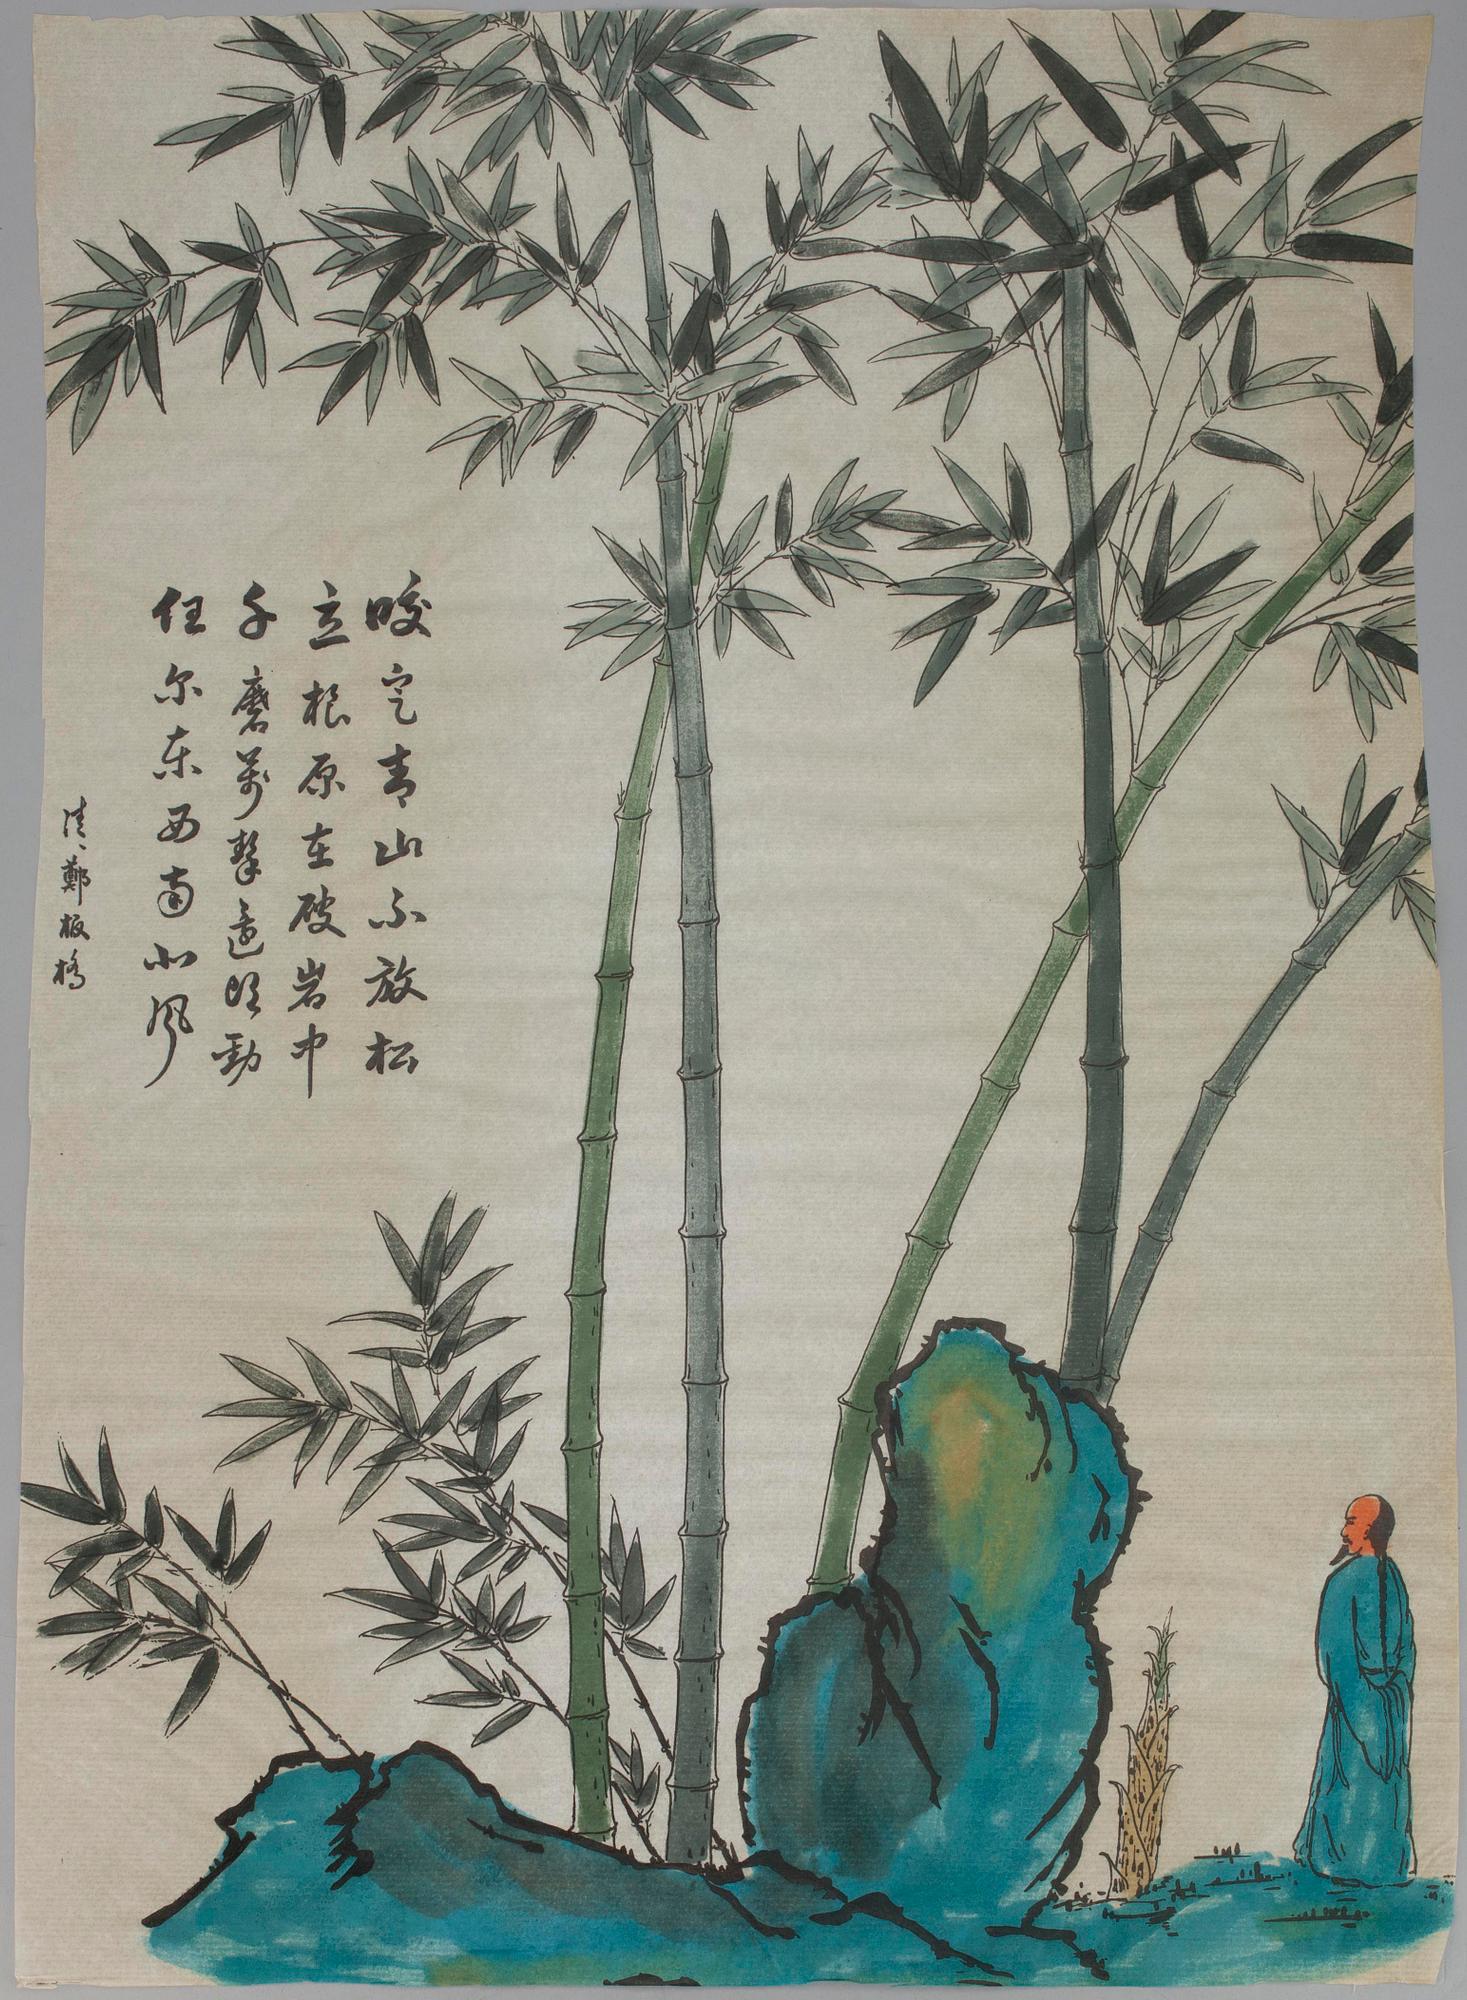 咬定青山不放松
立根原在破岩中
千磨万擊還坚勁
任尔东西南北风
清、鄭板橋